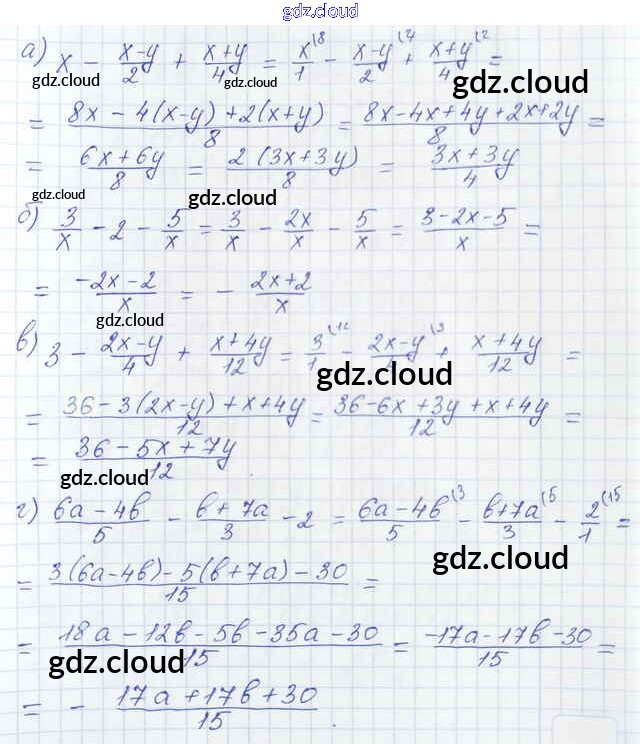 gdz.cloud
а) x - (x-y)/2 + (x+y)/4 = x/1 (8 - (x-y)/2 (4 + (x+y)/4 (2 =
gdz.cloud gdz.cloud gdz.cloud
= (8x - 4(x-y) + 2(x+y))/8 = (8x-4x+4y+2x+2y)/8 =
= (6x+6y)/8 = (2(3x+3y))/8 = (3x+3y)/4
gdz.cloud gdz.cloud gdz.cloud
б) 3/x - 2 - 5/x = 3/x - 2x/x - 5/x = (3-2x-5)/x =
= (-2x-2)/x = - (2x+2)/x
gdz.cloud
в) 3 - (2x-y)/4 + (x+4y)/12 = 3/1 (12 - (2x-y)/4 (3 + (x+4y)/12 =
gdz.cloud
= (36-3(2x-y)+x+4y)/12 = (36-6x+3y+x+4y)/12 =
= (36-5x+7y)/12.
gdz.cloud gdz.cloud
г) (6a-4b)/5 - (b+7a)/3 - 2 = (6a-4b)/5 (3 - (b+7a)/3 (5 - 2/1 (15 =
gdz.cloud gdz.cloud
= (3(6a-4b)-5(b+7a)-30)/15 =
= (18a-12b-5b-35a-30)/15 = (-17a-17b-30)/15 =
gdz.cloud gdz.cloud
= - (17a+17b+30)/15.